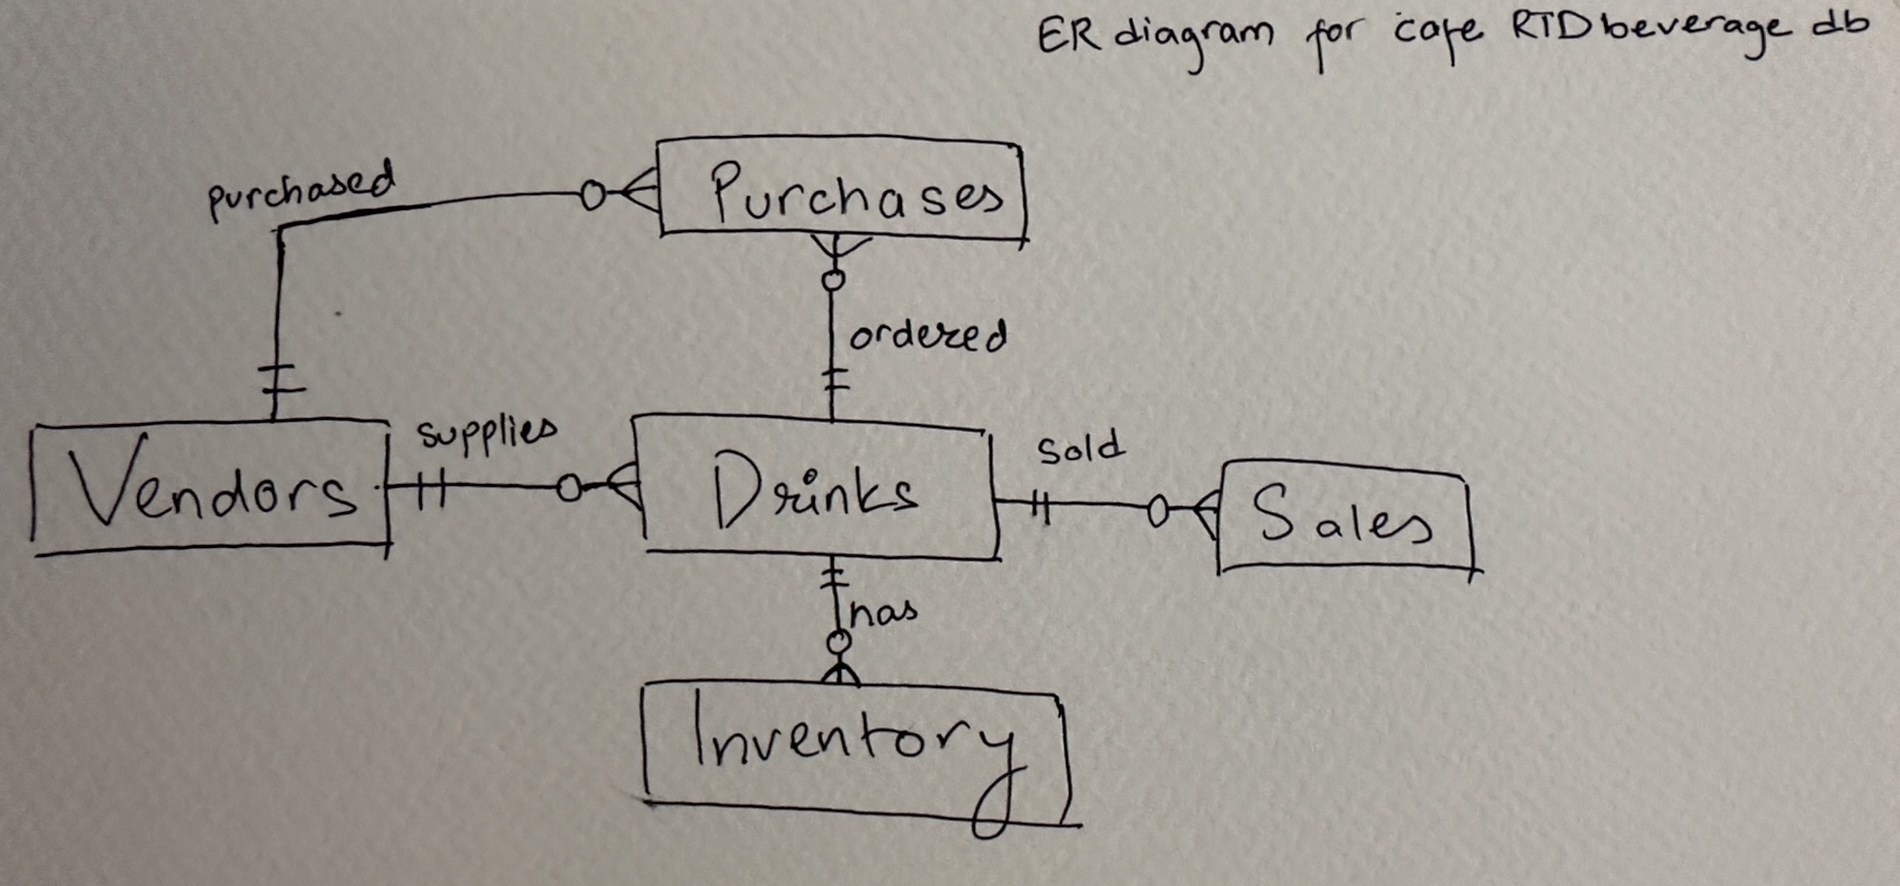 ER diagram for cafe RTD beverage db
purchased
Purchases
ordered
Vendors
supplies
Drinks
sold
Sales
has
Inventory